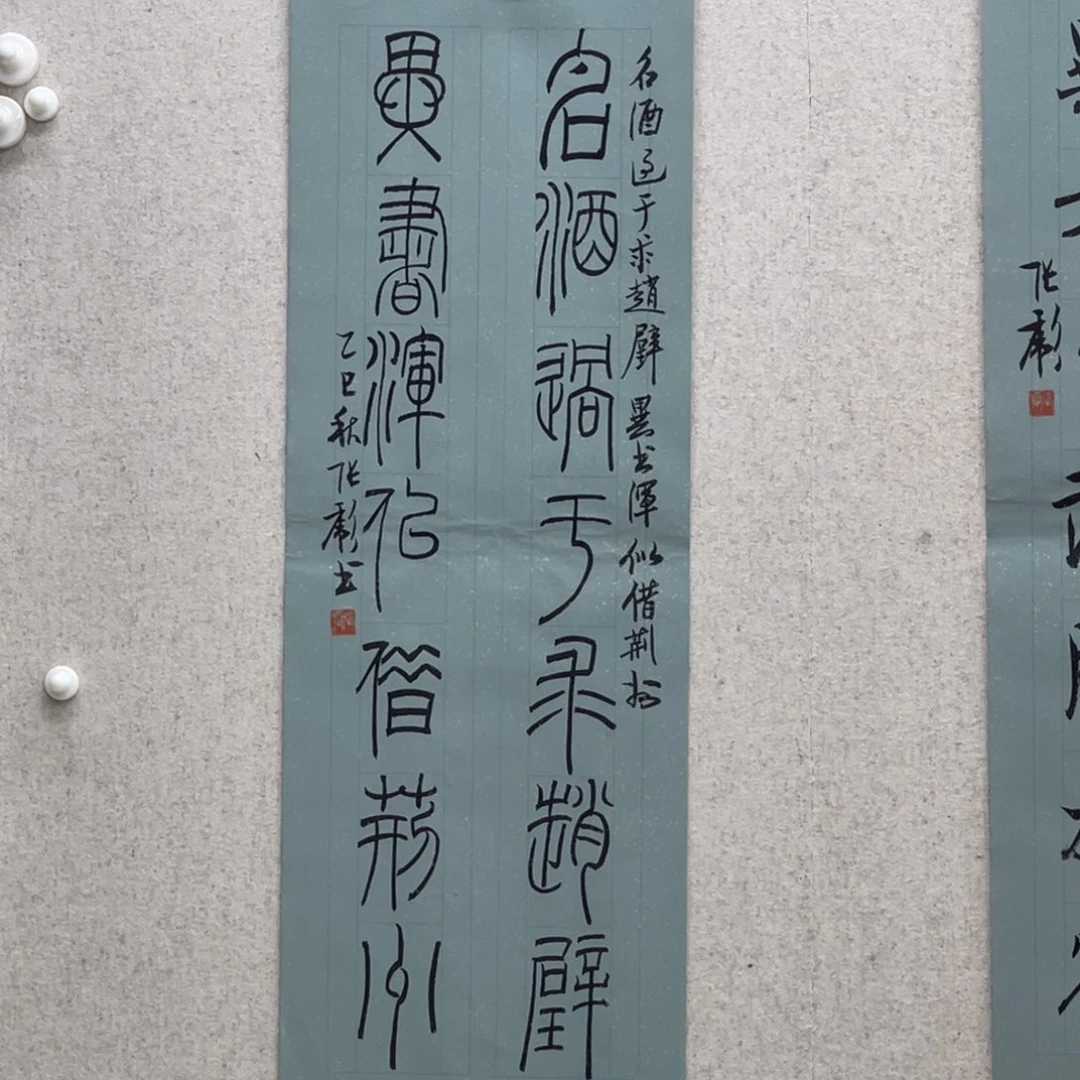 张彪
名酒过于求趙璧異书渾似借荆州
名酒過于求趙璧
異書渾佀借荊州
乙巳秋张彪书